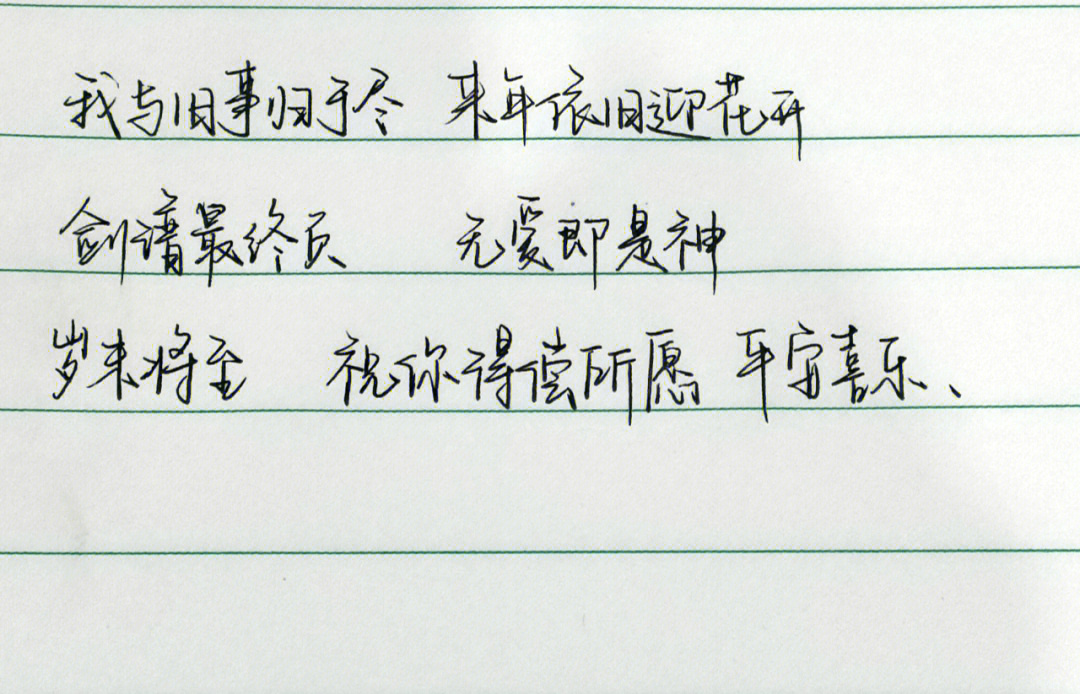 我与旧事归于尽 来年依旧迎花开
剑谱最终页 无爱即是神
岁末将至 祝你得偿所愿 平安喜乐、